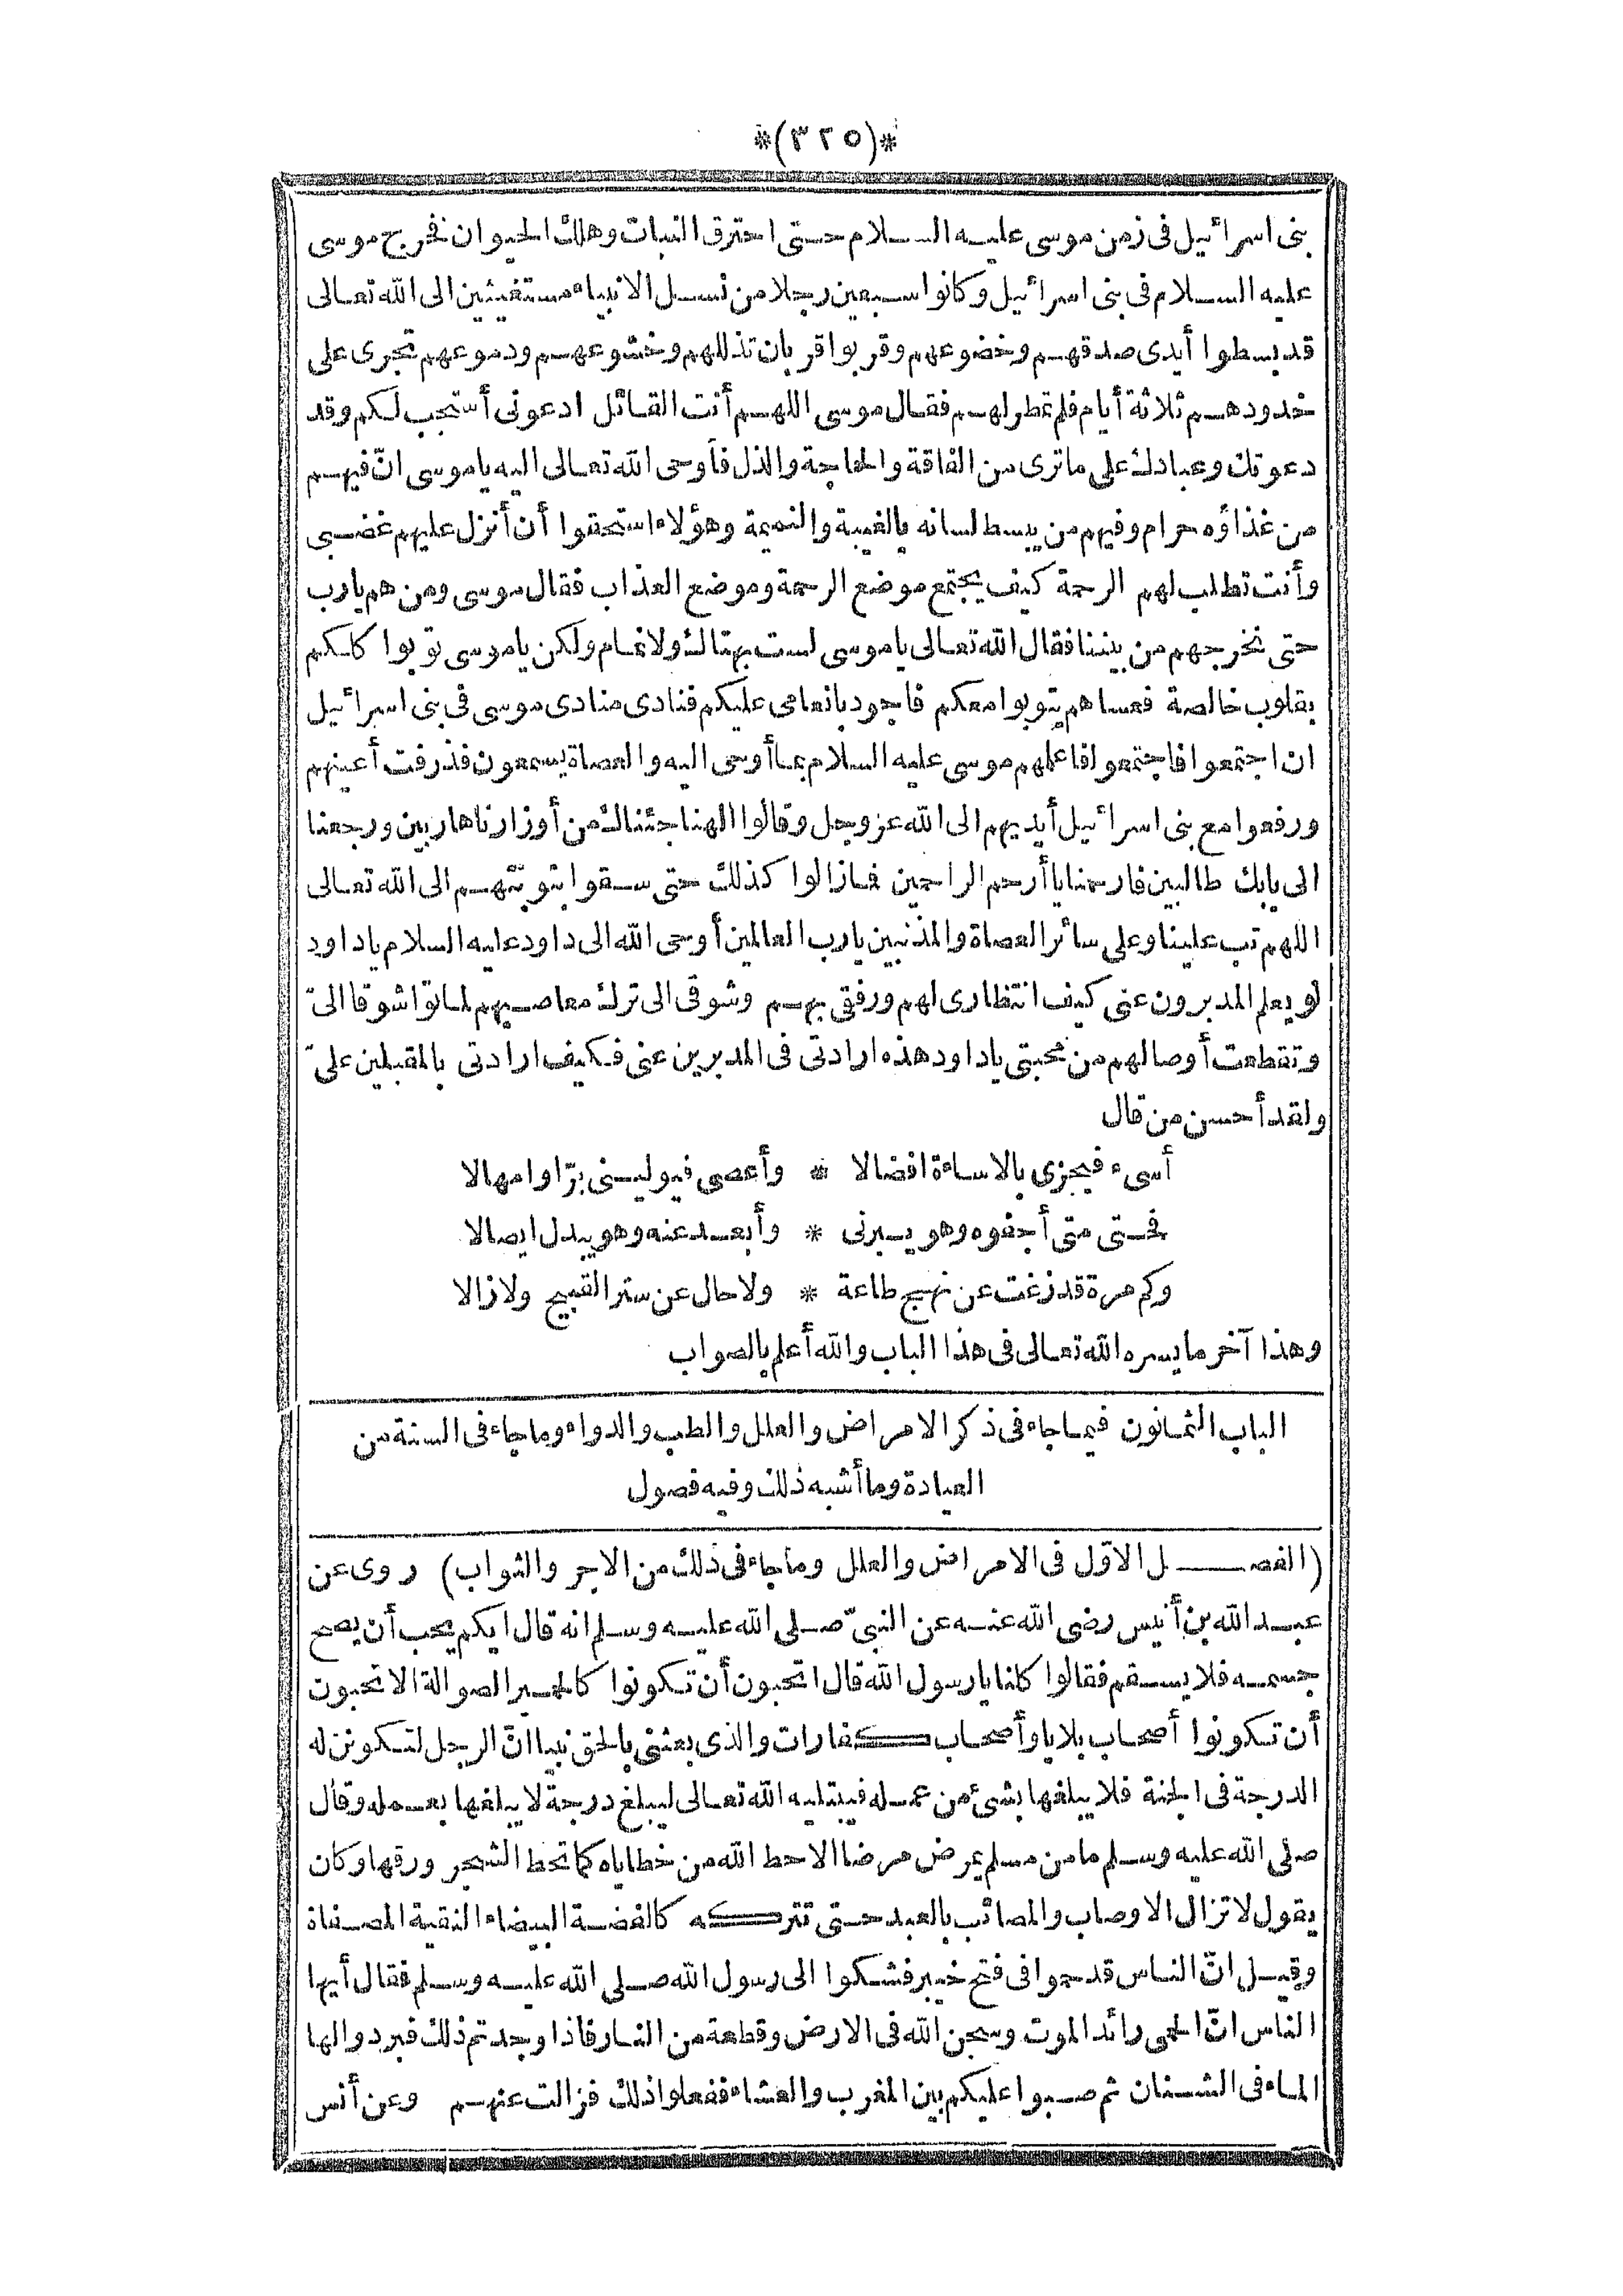 *(٣٢٥)*
بنى اسرائيل فى زمن موسى عليه السلام حتى احترق النبات وهلك الحيوان فخرج موسى
عليه السلام فى بنى اسرائيل وكانوا سبعين رجلا من نسل الانبياء مستغيثين الى الله تعالى
قد بسطوا أيدى صدقهم وخضوعهم وقربوا قربان تذللهم وخشوعهم ودموعهم تجرى على
خدودهم ثلاثة أيام فلم تمطر لهم فقال موسى اللهم أنت القائل ادعونى أستجب لكم وقد
دعوتك وعبادك على ما ترى من الفاقة والحاجة والذل فأوحى الله تعالى اليه يا موسى انّ فيهم
من غذاؤه حرام وفيهم من يبسط لسانه بالغيبة والنميمة وهؤلاء استحقوا أن أنزل عليهم غضبى
وأنت تطلب لهم الرحمة كيف يجتمع موضع الرحمة وموضع العذاب فقال موسى ومن هم يارب
حتى نخرجهم من بيننا فقال الله تعالى يا موسى لست بهتاك ولا نمام ولكن يا موسى توبوا كلكم
بقلوب خالصة فعساهم يتوبوا معكم فاجود بانعامى عليكم فنادى منادى موسى فى بنى اسرائيل
ان اجتمعوا فاجتمعوا فاعلمهم موسى عليه السلام بما أوحى اليه والعصاة يسمعون فذرفت أعينهم
ورفعوا مع بنى اسرائيل أيديهم الى الله عز وجل وقالوا الهنا جئناك من أوزارنا هاربين ورجعنا
الى بابك طالبين فارحمنا يا أرحم الراحمين فمازالوا كذلك حتى سقوا بتوبتهم الى الله تعالى
اللهم تب علينا وعلى سائر العصاة والمذنبين يارب العالمين أوحى الله الى داود عليه السلام ياداود
لو يعلم المدبرون عنى كيف انتظارى لهم ورفقى بهم وشوقى الى ترك معاصيهم لماتوا شوقا الىّ
وتقطعت أوصالهم من محبتى ياداود هذه ارادتى فى المدبرين عنى فكيف ارادتى بالمقبلين علىّ
ولقد أحسن من قال
أسىء فيجزى بالاساءة افضالا * وأعصى فيولينى برّا وامهالا
فحتى متى أجفوه وهو يبرنى * وأبعد عنه وهو يبدل ايصالا
وكم مرة قد زغت عن نهج طاعة * ولا حال عن ستر القبيح ولا زالا
وهذا آخر ما يسره الله تعالى فى هذا الباب والله أعلم بالصواب
الباب الثمانون فيما جاء فى ذكر الامراض والعلل والطب والدواء وما جاء فى السنة من
العيادة وما أشبه ذلك وفيه فصول
(الفصل الاوّل فى الامراض والعلل وما جاء فى ذلك من الاجر والثواب) روى عن
عبد الله بن أنيس رضى الله عنه عن النبىّ صلى الله عليه وسلم انه قال ايكم يحب أن يصح
جسمه فلا يسقم فقالوا كلنا يارسول الله قال اتحبون أن تكونوا كالحمير الصوالة الا تحبون
أن تكونوا أصحاب بلايا وأصحاب كفارات والذى بعثنى بالحق نبيا انّ الرجل لتكون له
الدرجة فى الجنة فلا يبلغها بشئ من عمله فيبتليه الله تعالى ليبلغ درجة لا يبلغها بعمله وقال
صلى الله عليه وسلم ما من مسلم يمرض مرضا الا حط الله من خطاياه كما تحط الشجر ورقها وكان
يقول لا تزال الاوصاب والمصائب بالعبد حتى تتركه كالفضة البيضاء النقية المصفاة
وقيل انّ الناس قد حموا فى فتح خيبر فشكوا الى رسول الله صلى الله عليه وسلم فقال أيها
الناس انّ الحمى رائد الموت وسجن الله فى الارض وقطعة من النار فاذا وجدتم ذلك فبردوا لها
الماء فى الشنان ثم صبوا عليكم بين المغرب والعشاء ففعلوا ذلك فزالت عنهم وعن أنس